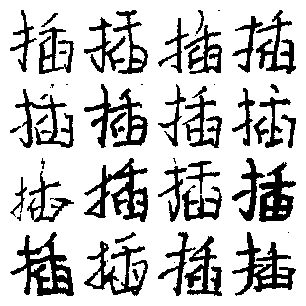 插插插插
插插插插
插插插插
插插插插